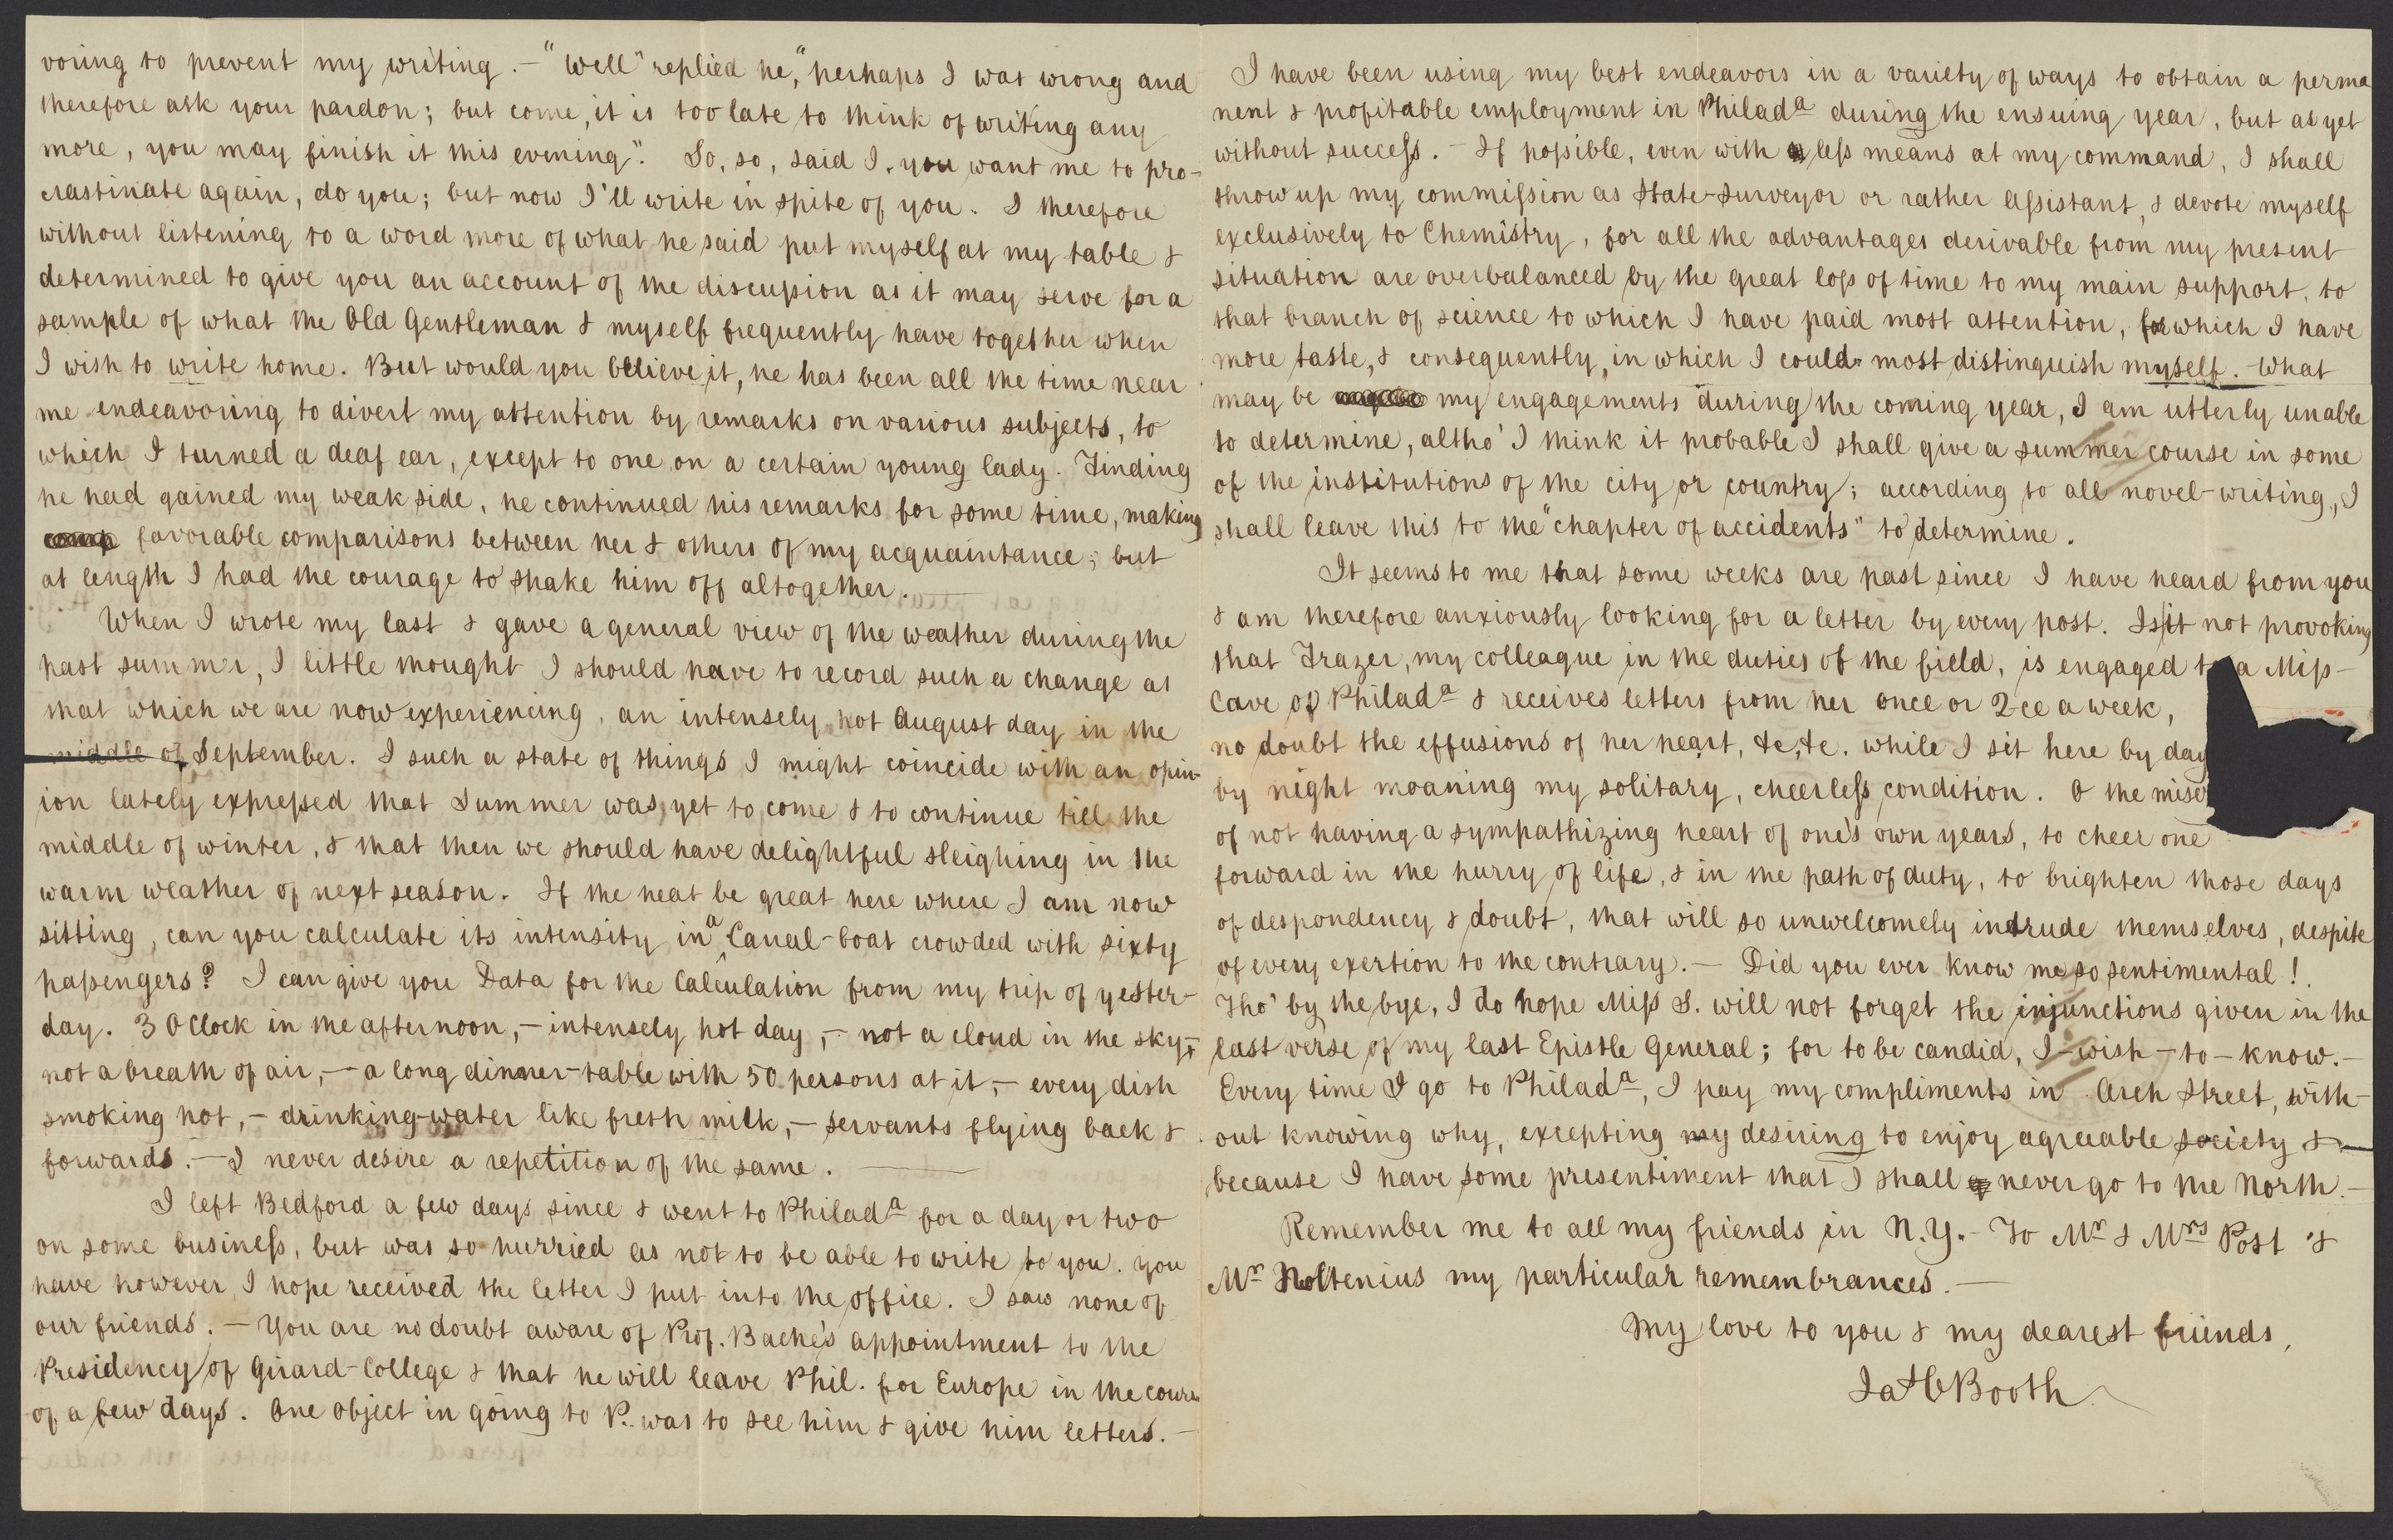 voring to prevent my writing. — "Well" replied he, "perhaps I was wrong and
therefore ask your pardon; but come, it is too late to think of writing any
more, you may finish it this evening". So, so, said I, you want me to pro-
crastinate again, do you; but now I'll write in spite of you. I therefore
without listening to a word more of what he said put myself at my table &
determined to give you an account of the discussion as it may serve for a
sample of what the Old Gentleman & myself frequently have together when
I wish to write home. But would you believe it, he has been all the time near
me endeavoring to divert my attention by remarks on various subjects, to
which I turned a deaf ear, except to one on a certain young lady. Finding
he had gained my weak side, he continued his remarks for some time, making
comp favorable comparisons between her & others of my acquaintance; but
at length I had the courage to shake him off altogether. —
When I wrote my last & gave a general view of the weather during the
past summer, I little thought I should have to record such a change as
that which we are now experiencing, an intensely hot August day in the
middle of September. I such a state of things I might coincide with an opin-
ion lately expressed that Summer was yet to come & to continue till the
middle of winter, & that then we should have delightful sleighing in the
warm weather of next season. If the heat be great here where I am now
sitting, can you calculate its intensity in a Canal-boat crowded with sixty
passengers? I can give you Data for the Calculation from my trip of yester-
day. 3 OClock in the afternoon, — intensely hot day, — not a cloud in the sky, —
not a breath of air, — a long dinner-table with 50 persons at it, — every dish
smoking hot, — drinking-water like fresh milk, — servants flying back &
forwards. — I never desire a repetition of the same. —
I left Bedford a few days since & went to Philada for a day or two
on some business, but was so hurried as not to be able to write to you. You
have however I hope received the letter I put into the office. I saw none of
our friends. — You are no doubt aware of Prof. Bache's appointment to the
Presidency of Girard-College & that he will leave Phil. for Europe in the course
of a few days. One object in going to P. was to see him & give him letters. —
I have been using my best endeavors in a variety of ways to obtain a perma
nent & profitable employment in Philada during the ensuing year, but as yet
without success. — If possible, even with less means at my command, I shall
throw up my commission as State-Surveyor or rather Assistant, & devote myself
exclusively to Chemistry, for all the advantages derivable from my present
situation are overbalanced by the great loss of time to my main support, to
that branch of science to which I have paid most attention, for which I have
more taste, & consequently, in which I could most distinguish myself. — What
may be my engagements during the coming year, I am utterly unable
to determine, altho' I think it probable I shall give a summer course in some
of the institutions of the city or country; according to all novel-writing, I
shall leave this to the "chapter of accidents" to determine.
It seems to me that some weeks are past since I have heard from you
& am therefore anxiously looking for a letter by every post. Is it not provoking
that Frazer, my colleague in the duties of the field, is engaged to a Miss
Cave of Philada & receives letters from her once or 2-ce a week,
no doubt the effusions of her heart, &c, &c. while I sit here by day
by night moaning my solitary, cheerless condition. O the miser
of not having a sympathizing heart of one's own years, to cheer one
forward in the hurry of life, & in the path of duty, to brighten those days
of despondency & doubt, that will so unwelcomely intrude themselves, despite
of every exertion to the contrary. — Did you ever know me so sentimental!
Tho' by the bye, I do hope Miss S. will not forget the injunctions given in the
last verse of my last Epistle General; for to be candid, I — wish — to — know. —
Every time I go to Philada, I pay my compliments in Arch Street, with-
out knowing why, excepting my desiring to enjoy agreeable society &
because I have some presentiment that I shall never go to the North. —
Remember me to all my friends in N.Y. — To Mr & Mrs Post &
Mr Noltenius my particular remembrances. —
My love to you & my dearest friends,
Jas C Booth